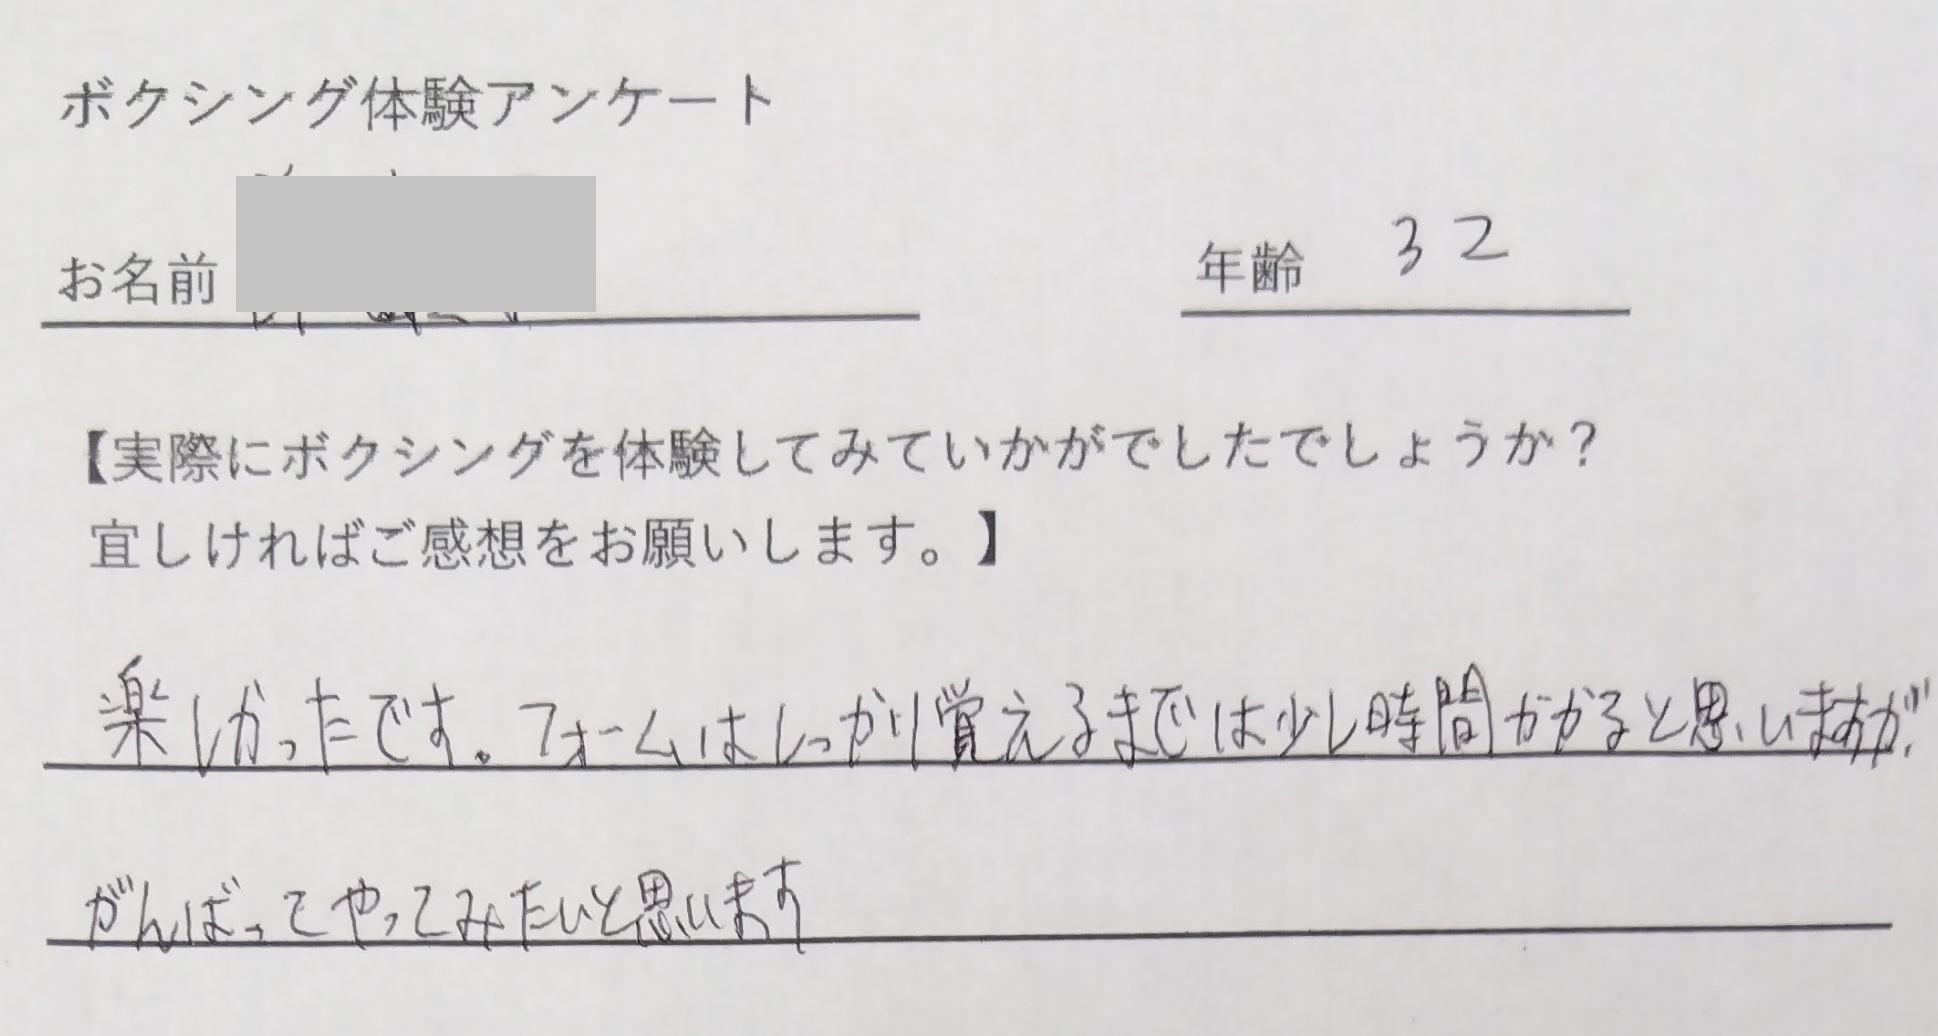 ボクシング体験アンケート
お名前 年齢 32
【実際にボクシングを体験してみていかがでしたでしょうか？
宜しければご感想をお願いします。】
楽しかったです。フォームはしっかり覚えるまでは少し時間かかると思いますが、
がんばってやってみたいと思います